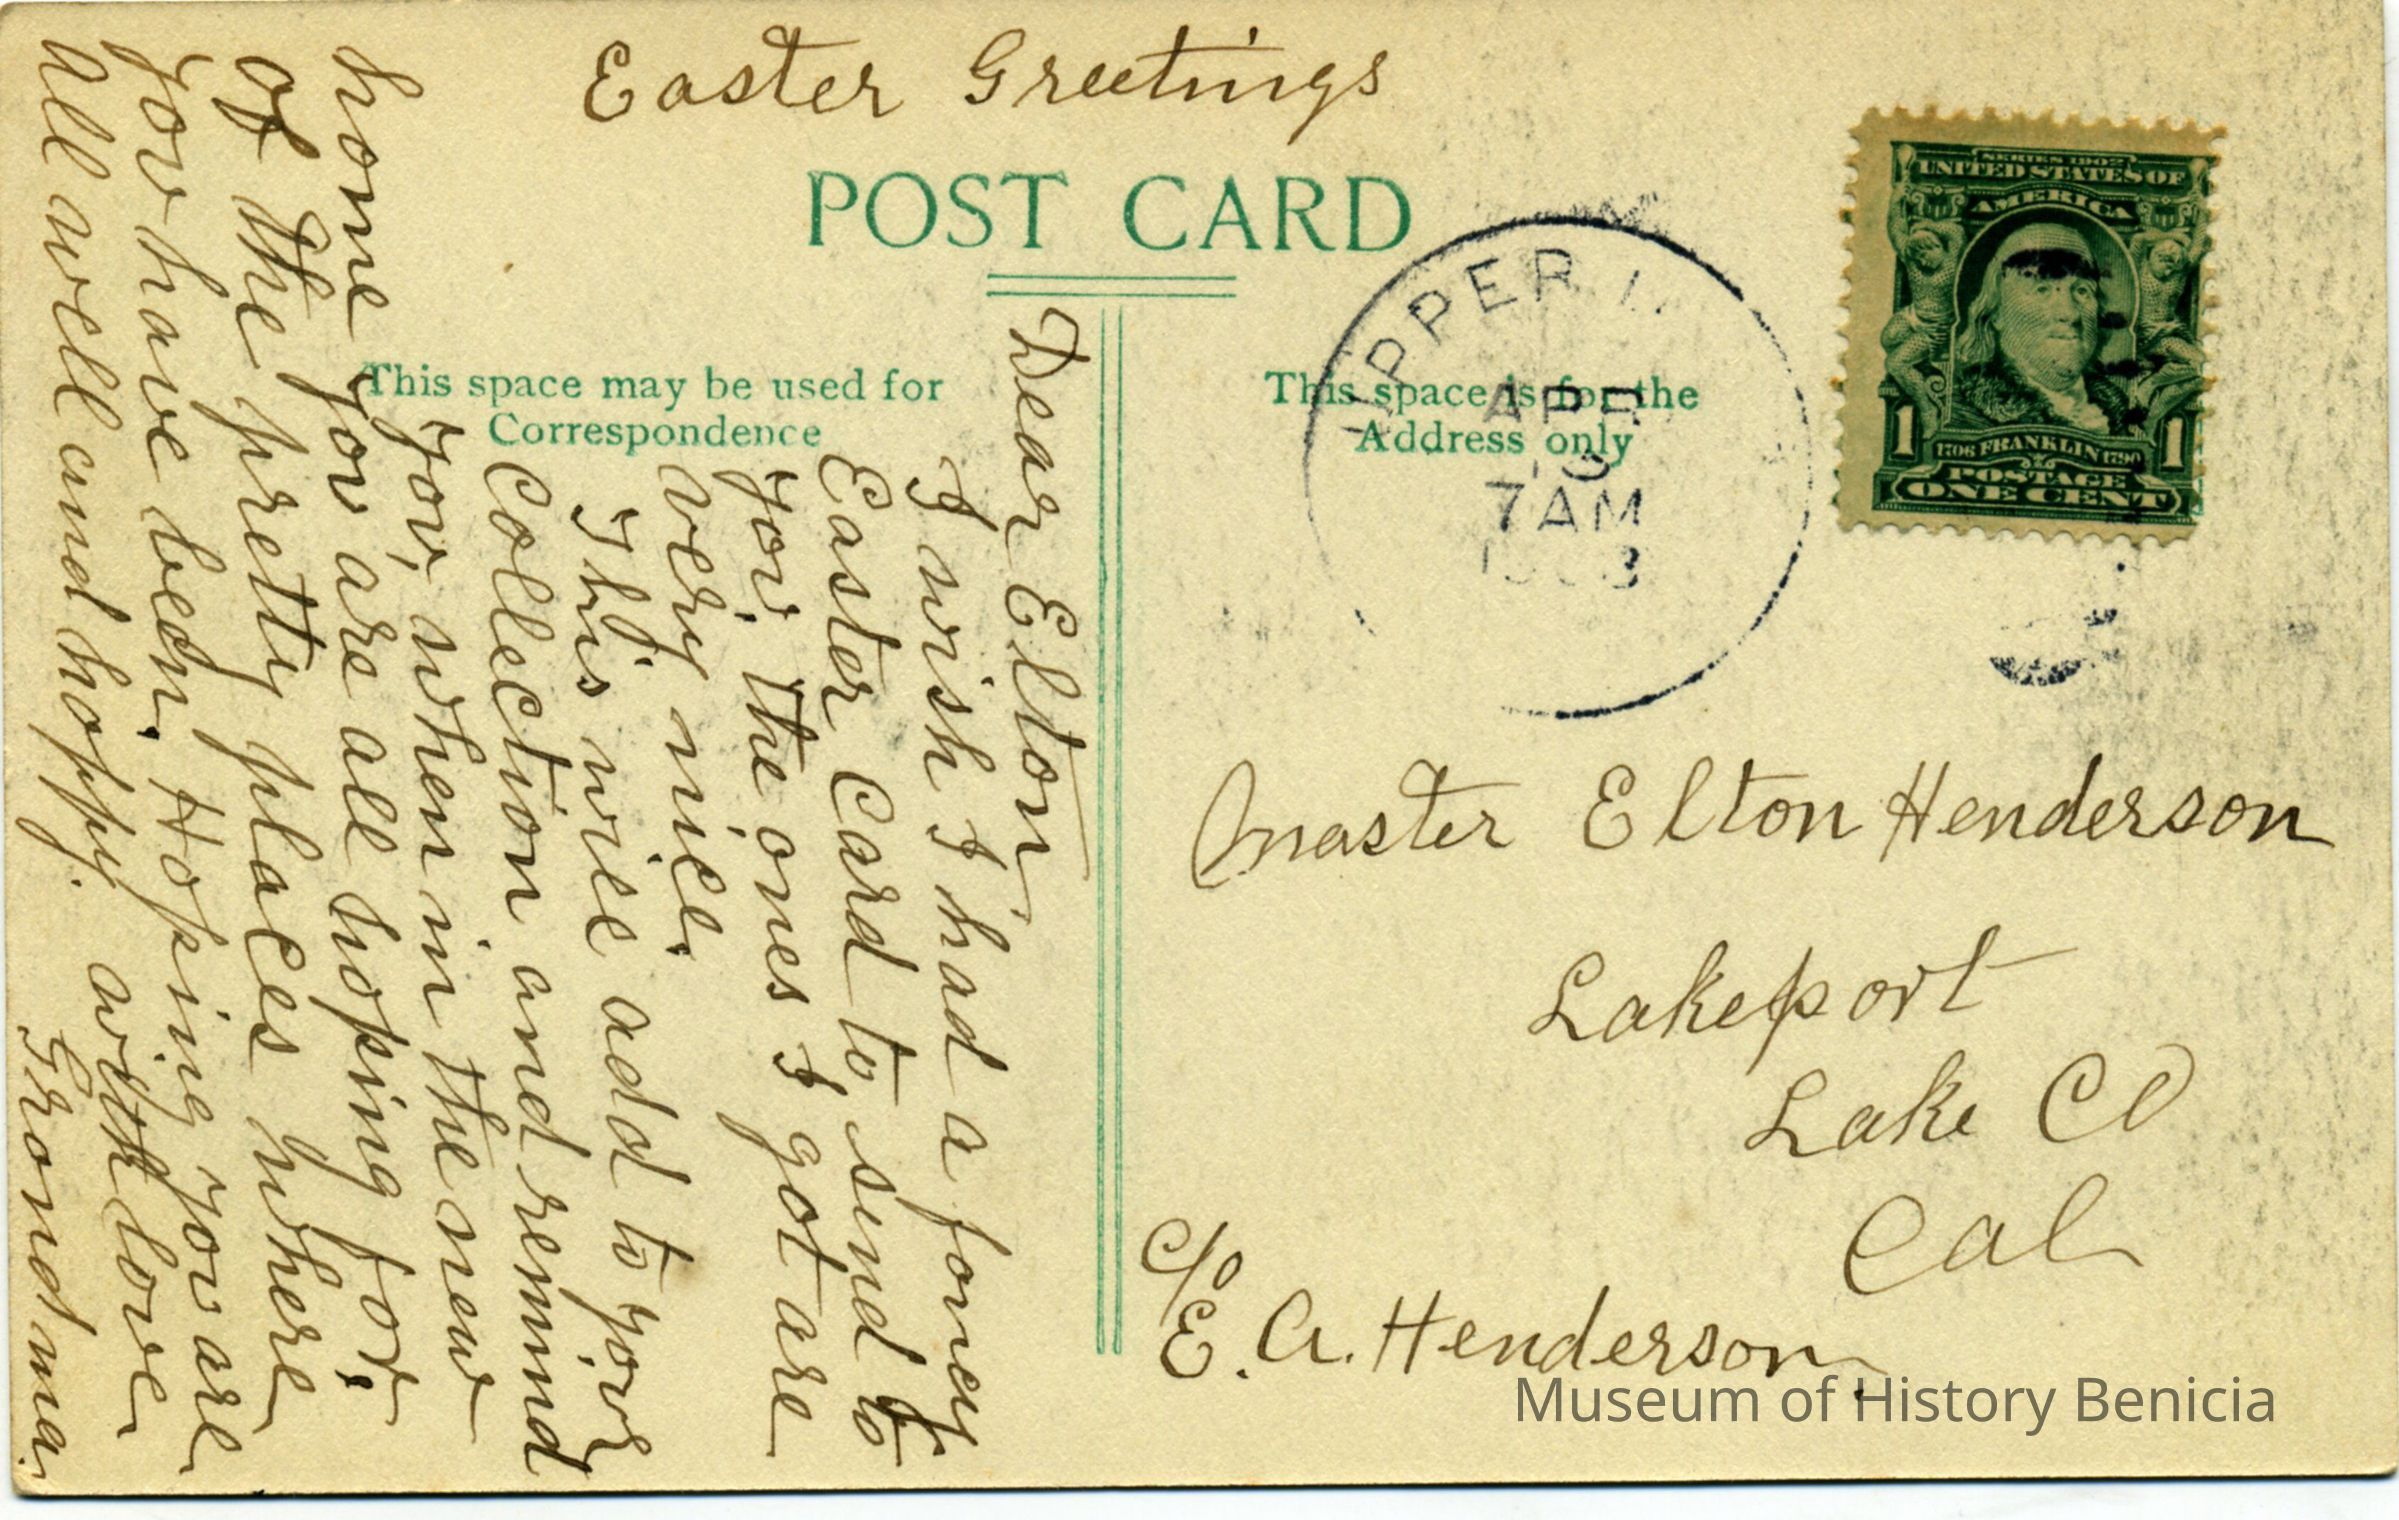 Easter Greetings
POST CARD
This space may be used for
Correspondence
This space is for the
Address only
Dear Elton
I wish I had a foncy
Easter Card to send to
yov. the ones I got are
very nice.
This wile add to yovr
Collection and remind
yov, when in the new
home yov are all hoping for,
of the pretty places where
yov have been. Hoping yov are
all well and hoppy. with love
Grondma.
UPPER
APR
7 AM
SERIES 1902
UNITED STATES OF
AMERICA
1706 FRANKLIN 1790
POSTAGE
1 1
ONE CENT
Master Elton Henderson
Lakeport
Lake Co
Cal
c/o
E. A. Henderson.
Museum of History Benicia